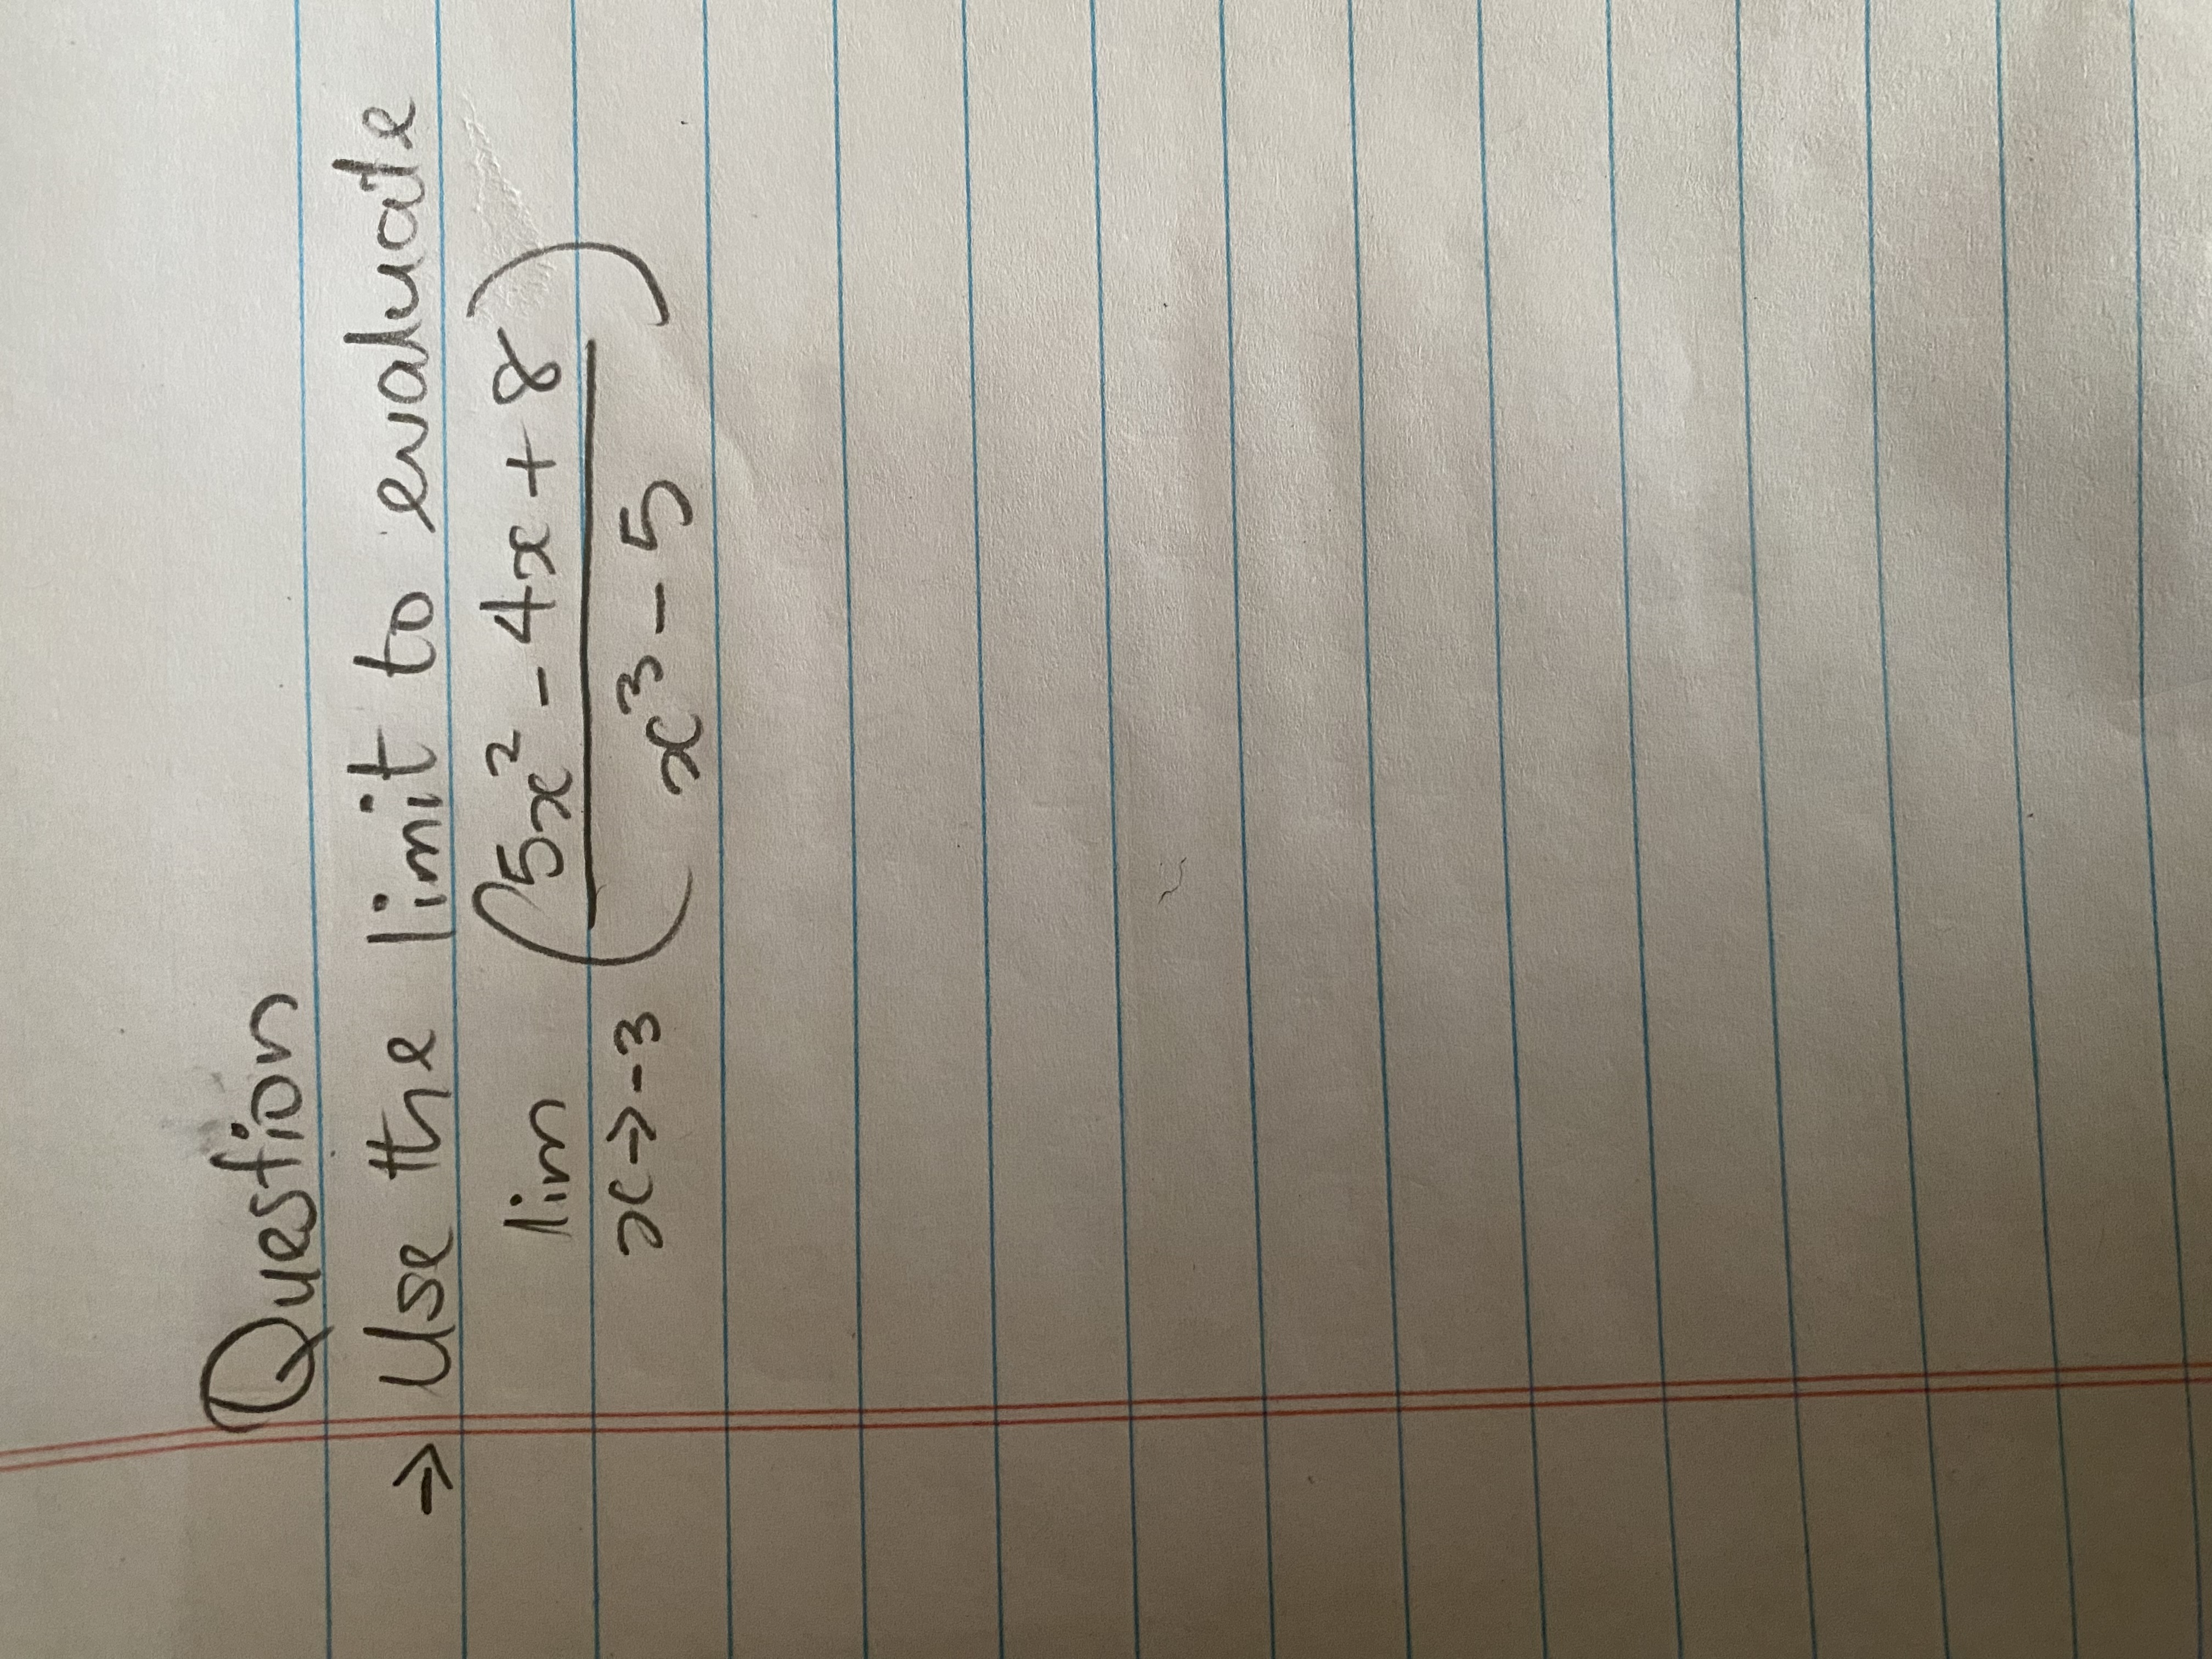 Question
→ Use the limit to evaluate
lim (5x² - 4x + 8)
x→-3 x³ - 5